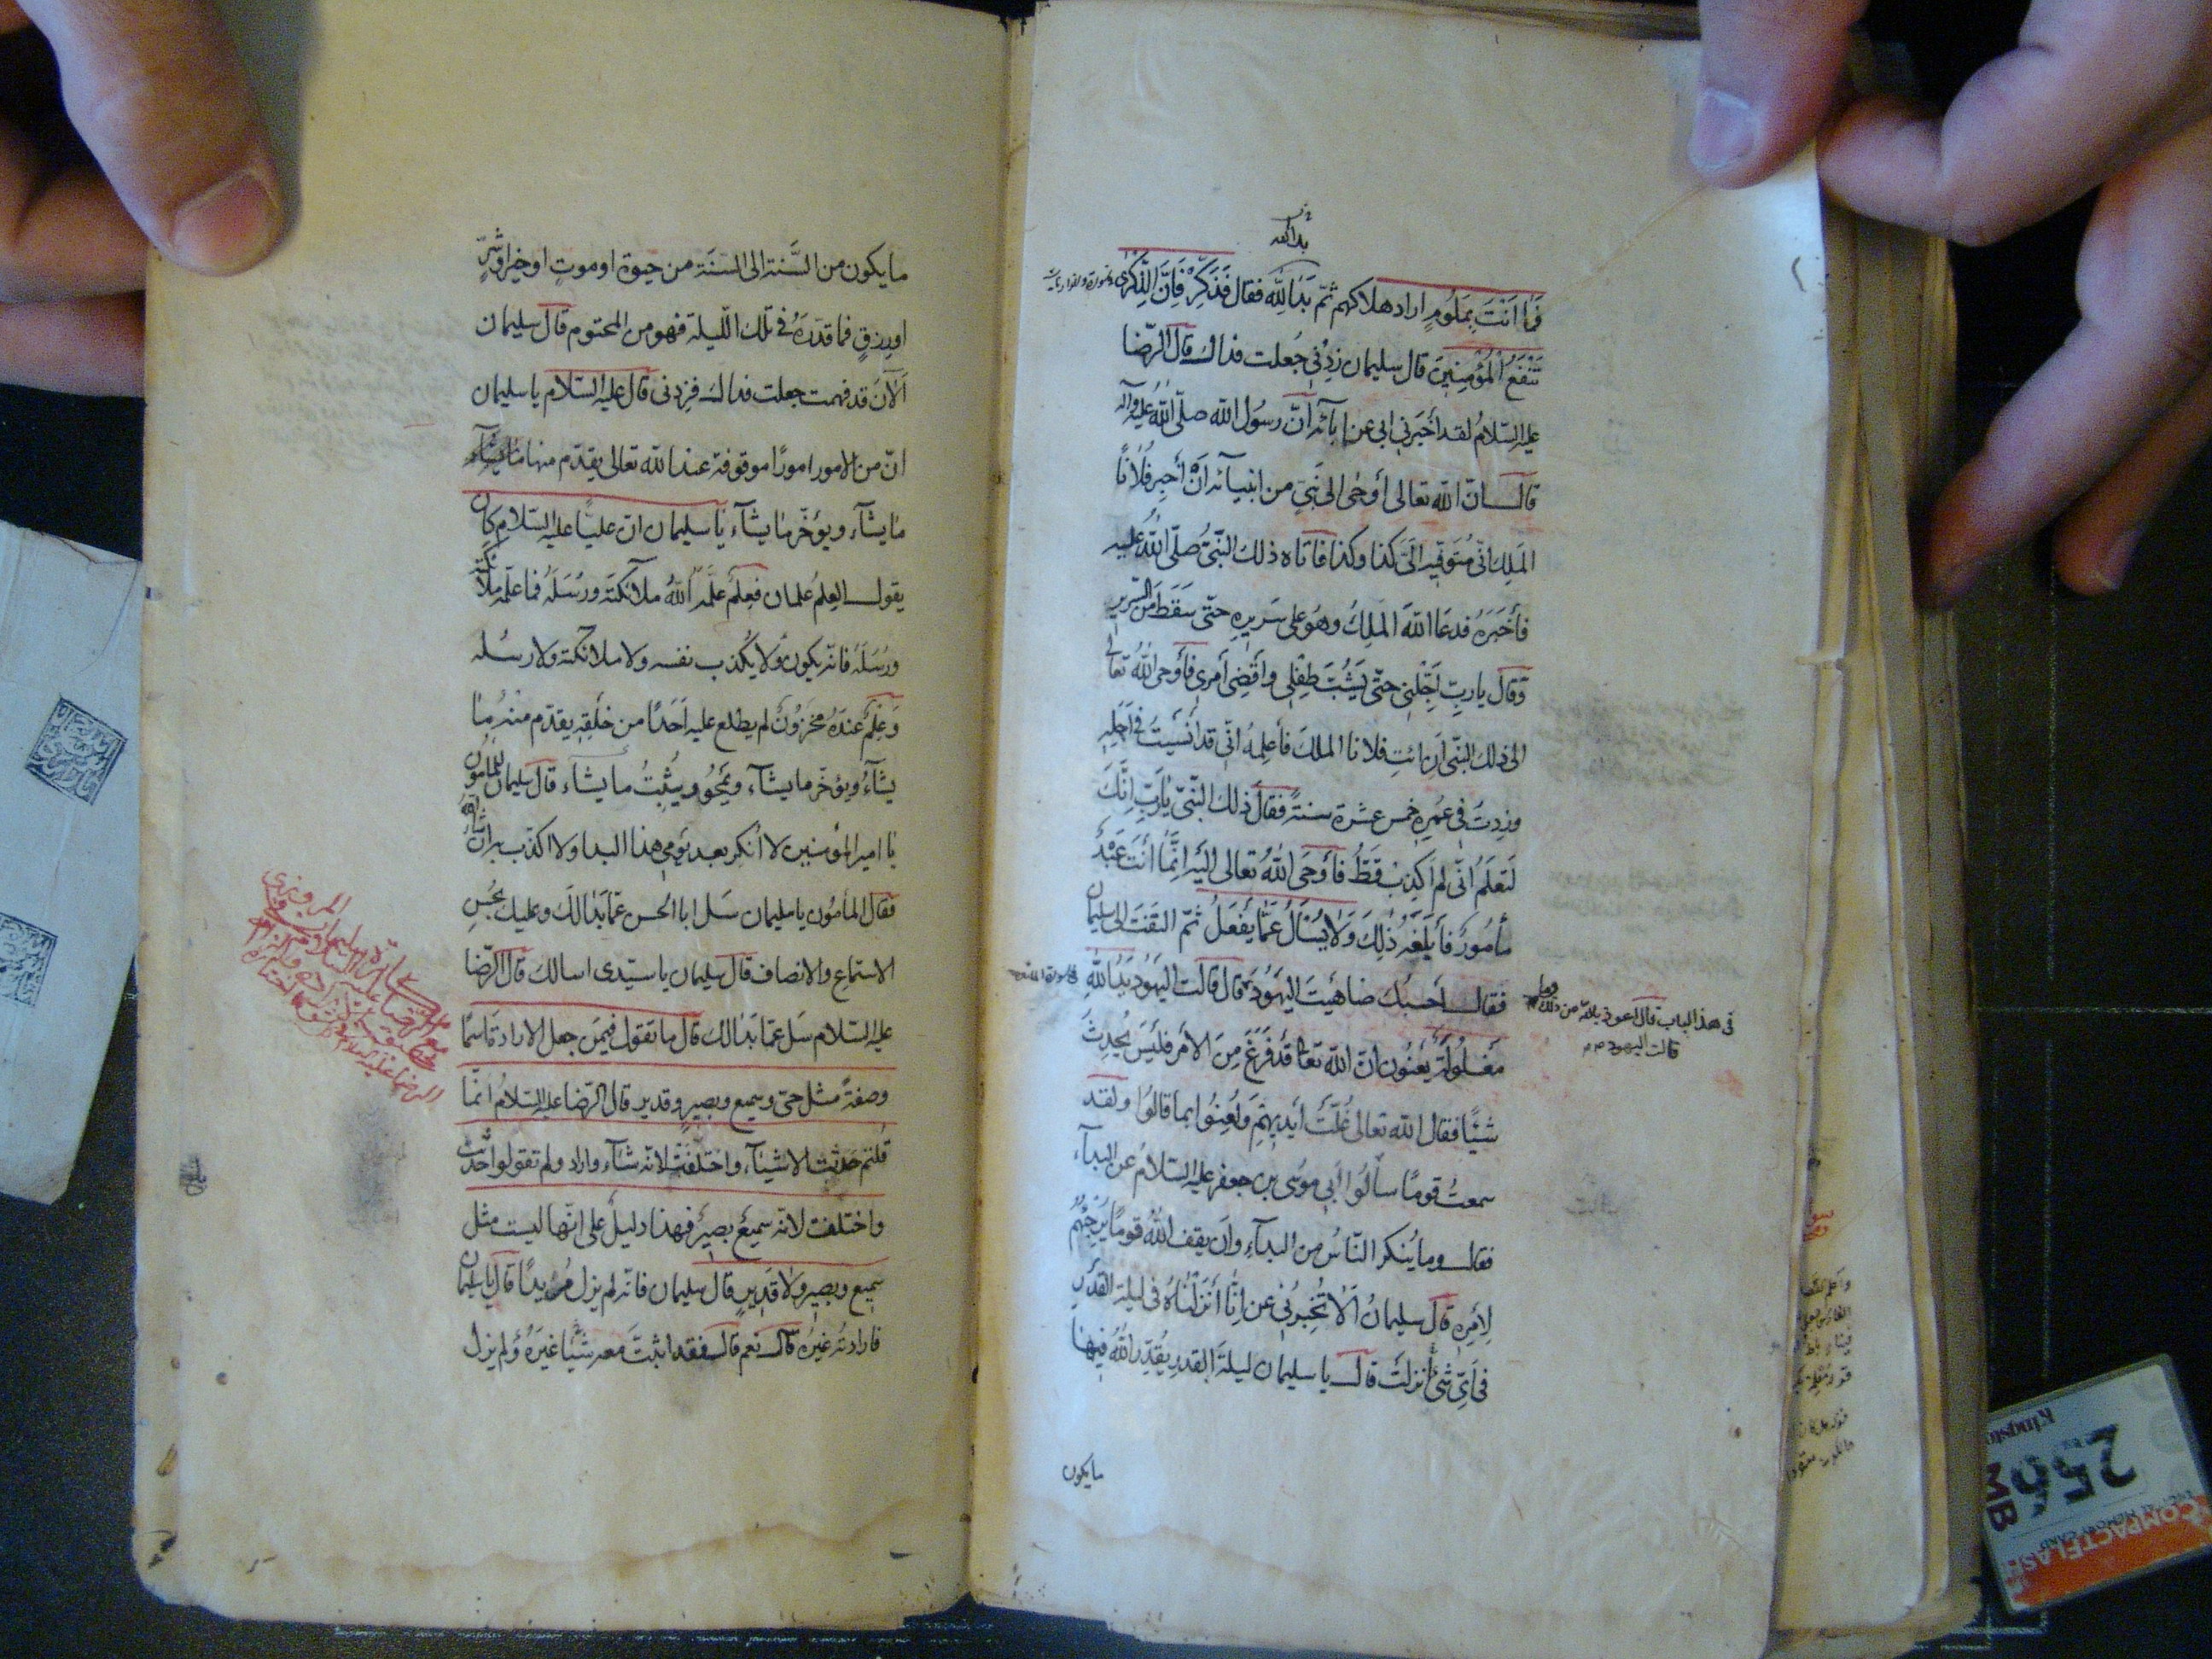 بدا لله
فَمَا اَنْتَ بِمَلُومٍ اراد هلاكهم ثمّ بَدَا لِلّٰه فقال فَذَكِّرْ فَاِنَّ الذِّكْرٰى
تَنْفَعُ الْمُؤْمِنِينَ قال سليمان زِدْنِى جُعلت فداك قال الرّضا
عليه السّلامُ لقد أخبَرنى ابى عن ابآئه انّ رسُول الله صلّى الله عليه وآله
قال انّ الله تعالى أوحٰى الى نَبىّ من انبيآئه اَنْ أخبِر فُلانًا
المَلِك انّى مُتَوَفّيه الىَ كذا وكذا فاتاه ذلك النّبىّ صلّى اللهُ عليه
فأخبَرهُ فدعَا اللهَ المَلِكُ وهُو على سَريرِه حتّى سَقَطَ من السّرير
وَقال ياربّ اَجّلنى حتّى يَشُبّ طِفلى واَقضِىَ اَمرى فأوحى اللهُ تعالى
الى ذلك النّبى اَن ائتِ فلانا الملكَ فأعلِمهُ انّى قد أنسَيتُ فى اَجَلِهِ
وزِدتُ فى عُمرِه خمس عشرة سنةً فقالَ ذلك النّبىّ يارَبِّ اِنّكَ
لَتعلَمُ انّى لم اَكذِبْ قطُّ فأوحَى اللهُ تعالى اليه اِنّما أنتَ عَبدٌ
مأمُورٌ فَأبلغهُ ذٰلِكَ وَلَا يُسْأَلُ عَمَّا يَفْعَلُ ثمّ التفَتَ الى سليمان
فقال أحسبُكَ ضاهَيتَ اليَهُودَ قال قالَت اليَهُود يَدُ اللهِ
فى هذا الباب قال اعوذ بالله من ذلك وما
قالت اليهود
مَغْلُولَةٌ يَعنُون انّ الله تعا قَد فَرَغ مِنَ الأمرِ فليسَ يُحدِث
شيئًا فقال الله تعالى غُلّتْ أيديهِمْ وَلُعِنُوا بما قالُوا ولقد
سمعتُ قومًا سألُوا أبى موسى بن جعفر عليه السّلامُ عن البدآء
فقال وما يُنكر النّاسُ من البدآء وان يقف اللهُ قومًا يُرجيهُم
لِأمرِه قال سليمانُ اَلا تُخبِرُنى عن اِنّا اَنزَلْنَاهُ فى ليلة القدرِ
فى أىّ شئ أنزلَتْ قال يا سليمان ليلة القدر يُقدّرُ اللهُ فيها
مايكون
مايكون من السَّنة الى السّنَة من حيوة او موتٍ او خيراوشرّ
اورزقٍ فما قدّرَهُ فى تلك اللّيلة فهو من المحتوم قال سليمان
اَلآن قد فهمت جعلت فداك فزدنى قال عليه السّلام ياسليمان
انّ من الامور امورًا موقوفة عند الله تعالى يقدّم منها
مايشآء ويؤخّر مايشآء ياسليمان انّ عليّا عليه السّلام كان
يقول العِلمُ علمان فعِلمٌ علّمَهُ اللهُ ملآئكته ورُسُلَهُ فما علّمه ملآئكته
ورُسُلَهُ فانّه يكون ولايُكذب نفسه ولاملائكته ولارسله
وَعِلمٌ عنده مخزونٌ لم يطلع عليه اَحَدًا من خَلقِه يقدّم منه ما
يشآءُ ويؤخّر مايشآء ويَمحُو ويُثبِتُ مايشاء قال سليمان للمأمون
يا امير المؤمنين لا أنكر بعد يومى هذا البدا ولا اكذّب به ان شاء الله
فقال المأمون ياسليمان سَل ابا الحسن عمّا بَدَا لَكَ وعليك بحُسنِ
الاستماع والانصاف قال سليمان ياسيّدى اسالك قال الرّضا
عليه السّلام سَل عمّا بَدا لك قال ماتقول فيمَن جعل الارادة اسمًا
وصفةً مثل حىّ وسميع وبصيرٍ وقدير قال الرّضا عليه السّلامُ انّما
قُلتم حَدثت الاشيآء واختلَفَتْ لانّه شآء واراد ولم تقولوا حَدثت
واختلفت لانّه سميعٌ بصيرٌ فهذا دليلٌ على انّها ليست مثل
سميع وبصيرٍ ولاقَديرٍ قال سليمان فانّه لم يزل مُريدًا قال ياسليمان
فارادتهُ غيرهُ قال نعم قال فقد اثبتَ معه شيئًا غيرَهُ ولم يزل
المروزى
256
MB
Kingston
COMPACTFLASH